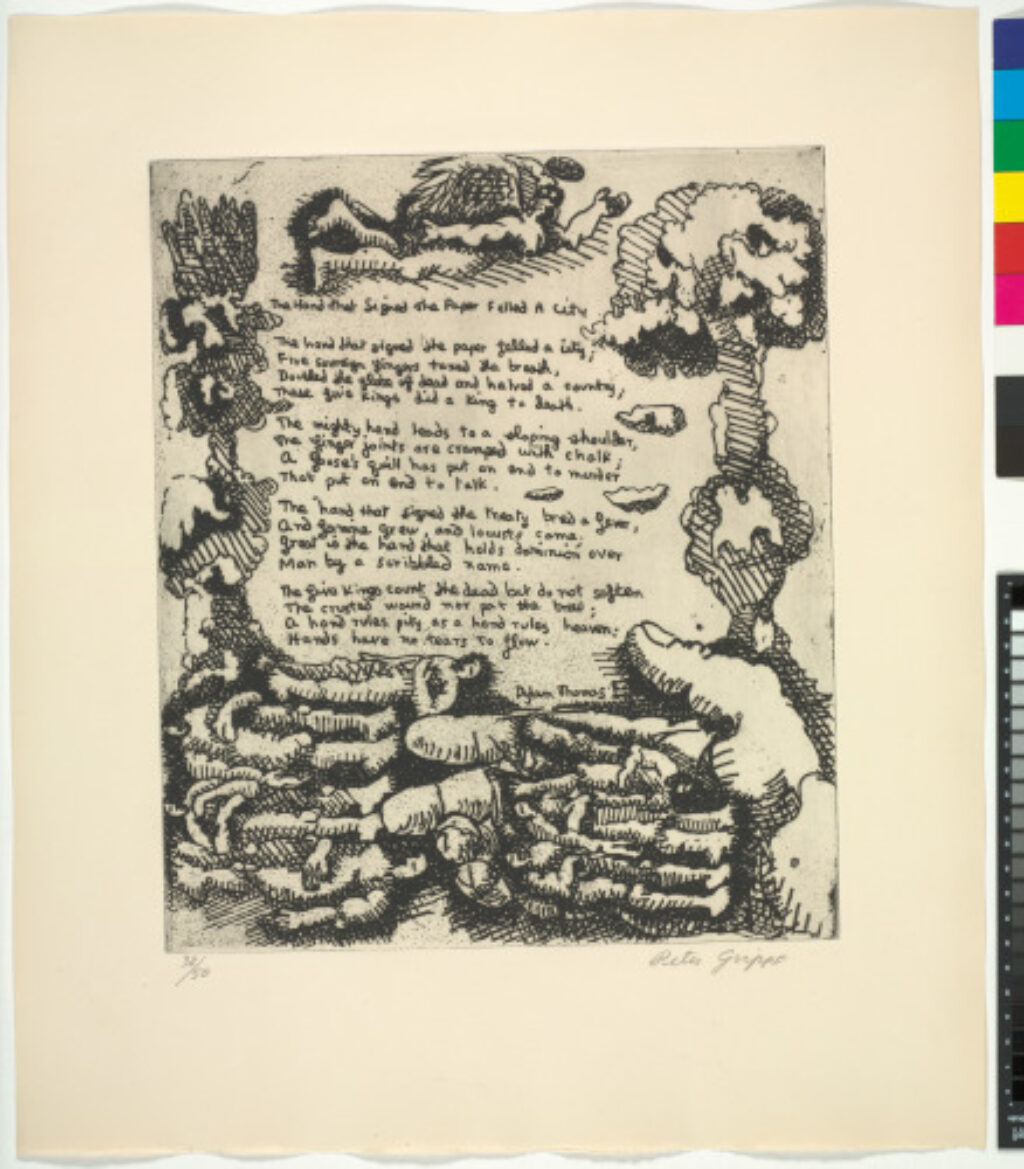 The Hand That Signed The Paper Felled A City
The hand that signed the paper felled a city;
Five sovereign fingers taxed the breath,
Doubled the globe of dead and halved a country;
These five kings did a king to death.
The mighty hand leads to a sloping shoulder,
The finger joints are cramped with chalk;
A goose's quill has put an end to murder
That put an end to talk.
The hand that signed the treaty bred a fever,
And famine grew, and locusts came;
Great is the hand that holds dominion over
Man by a scribbled name.
The five kings count the dead but do not soften
The crusted wound nor pat the brow;
A hand rules pity as a hand rules heaven;
Hands have no tears to flow.
Dylan Thomas
/50
Peter Grippe